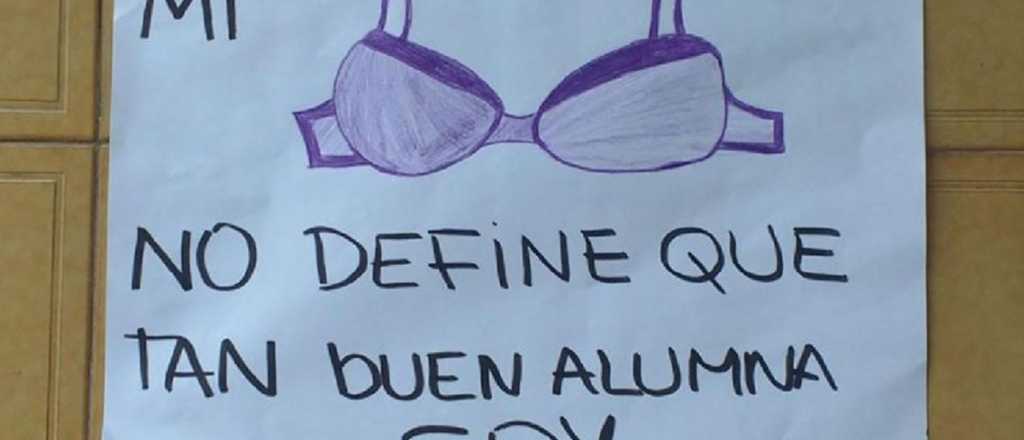 MI
NO DEFiNE QUE
TAN bUEN ALUMNA
SOY